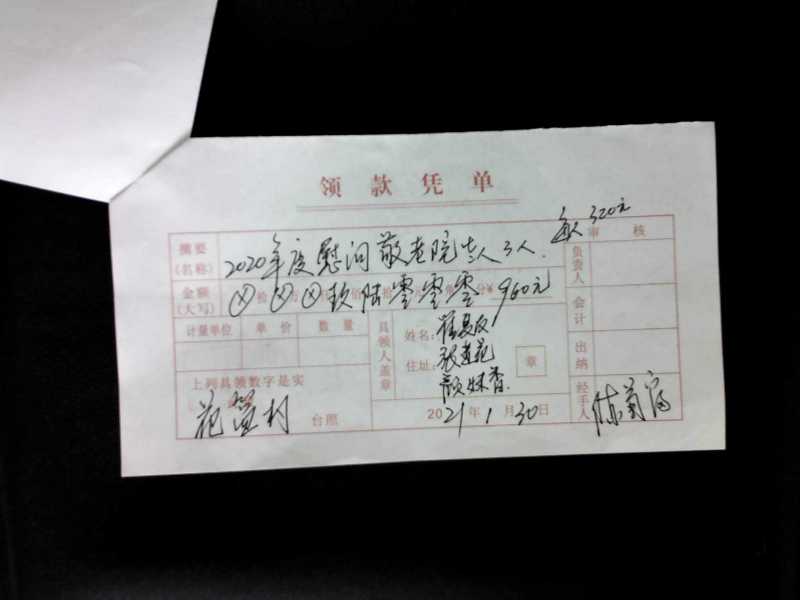 领款凭单
每人320元
摘要(名称) 2020年度慰问敬老院老人3人. 审核
金额(大写) ⊗拾⊗⊗玖陆零零零 960元 负责人
计量单位 单价 数量 具领人盖章 姓名: 会计
住址: 张 花 章 出纳
上列具领数字是实 颜妹香.
花 村 台照 2021年1月30日 经手人 陈菊